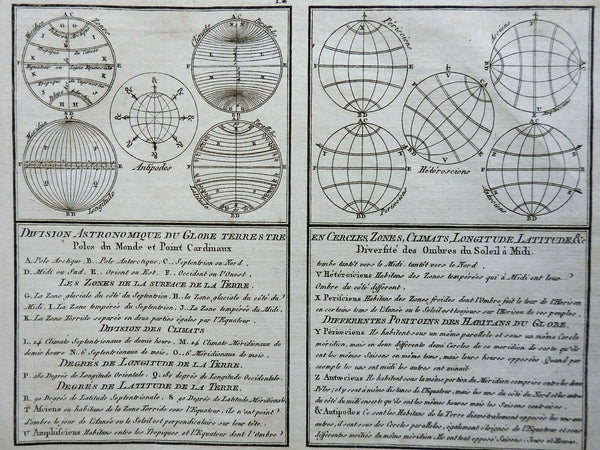 Zones
AC
Tropique du Cancer
Equateur ou Ligne Equinoctiale
BD
Climats
AC
Parallele
BD
Antipodes
Meridien
BD
Longitude
AC
Parallele
BD
Latitude
AC
Périsciens
BD
Hétérosciens
AC
BD
Périsciens
AC
BD
DIVISION ASTRONOMIQUE DU GLOBE TERRESTRE
Poles du Monde et Point Cardinaux
A. Pole Arctique. B. Pole Antarctique. C. Septentrion ou Nord.
D. Midi ou Sud. E. Orient ou Est. F. Occident ou l'Ouest.
LES ZONES DE LA SURFACE DE LA TERRE.
G. La Zone glaciale du côté du Septentrion. H. la Zone glaciale du côté du
Midi. I. La Zone tempérée du Septentrion. J. La Zone tempérée du Midi.
K. La Zone Torride séparée en deux parties égales par l'Equateur.
DIVISION DES CLIMATS
L. 24 Climats Septentrionaux de demie heure. M. 24 Climats Méridionaux de
demie heure N. 6 Septentrionaux de mois. O. 6 Méridionaux de mois.
DEGRÉS DE LONGITUDE DE LA TERRE.
P. 180 Degrés de Longitude Orientale. Q. 180 degrés de Longitude Occidentale.
DEGRÉS DE LATITUDE DE LA TERRE.
R. 90 Degrés de Latitude Septentrionale. S. 90 Degrés de Latitude Méridionale
T Asciens ou habitans de la Zone Torride sous l'Equateur, ils n'ont point
d'ombre le jour de l'Année ou le Soleil est perpendiculaire sur leur tête.
V Amphisciens Habitans entre les Tropiques et l'Equateur dont l'Ombre
EN CERCLES, ZONES, CLIMATS, LONGITUDE, LATITUDE, &c
Diversité des Ombres du Soleil à Midi.
tombe tantôt vers le Midi, tantôt vers le Nord.
V Hétérosciens Habitans des Zones tempérées qui à Midi ont leur
Ombre du côté different.
X Perisciens Habitans des Zones froides dont l'Ombre fait le tour de l'Horison
en certains tems de l'Année ou le Soleil est toujours sur l'Horison de ces peuples.
DIFFERENTES POSITOINS DES HABITANS DU GLOBE.
Y Périœciens Ils habitent sous un même parallele et sous un même Cercle
méridien, mais en deux differents demi Cercles de ce méridien de sorte qu'ils
ont les mêmes Saisons en même tems, mais leurs heures opposées. Quand par
exemple les uns ont midi les autres ont minuit
Z Antœciens Ils habitent sous la même portion du Méridien comprise entre les deux
Poles; et y sont à même distance de l'Equateur, mais les uns du côté du Nord et les autres
du côté du midi ensorte qu'ils ont les mêmes heures mais les Saisons contraires.
& Antipodes Ce sont les Habitans de la Terre diametralement opposés les uns aux
autres, il sont sous des Cercles paralleles, également éloignés de l'Equateur et sous
differentes moitiés du même méridien. Ils ont tout opposé Saisons, Jours et Heures.